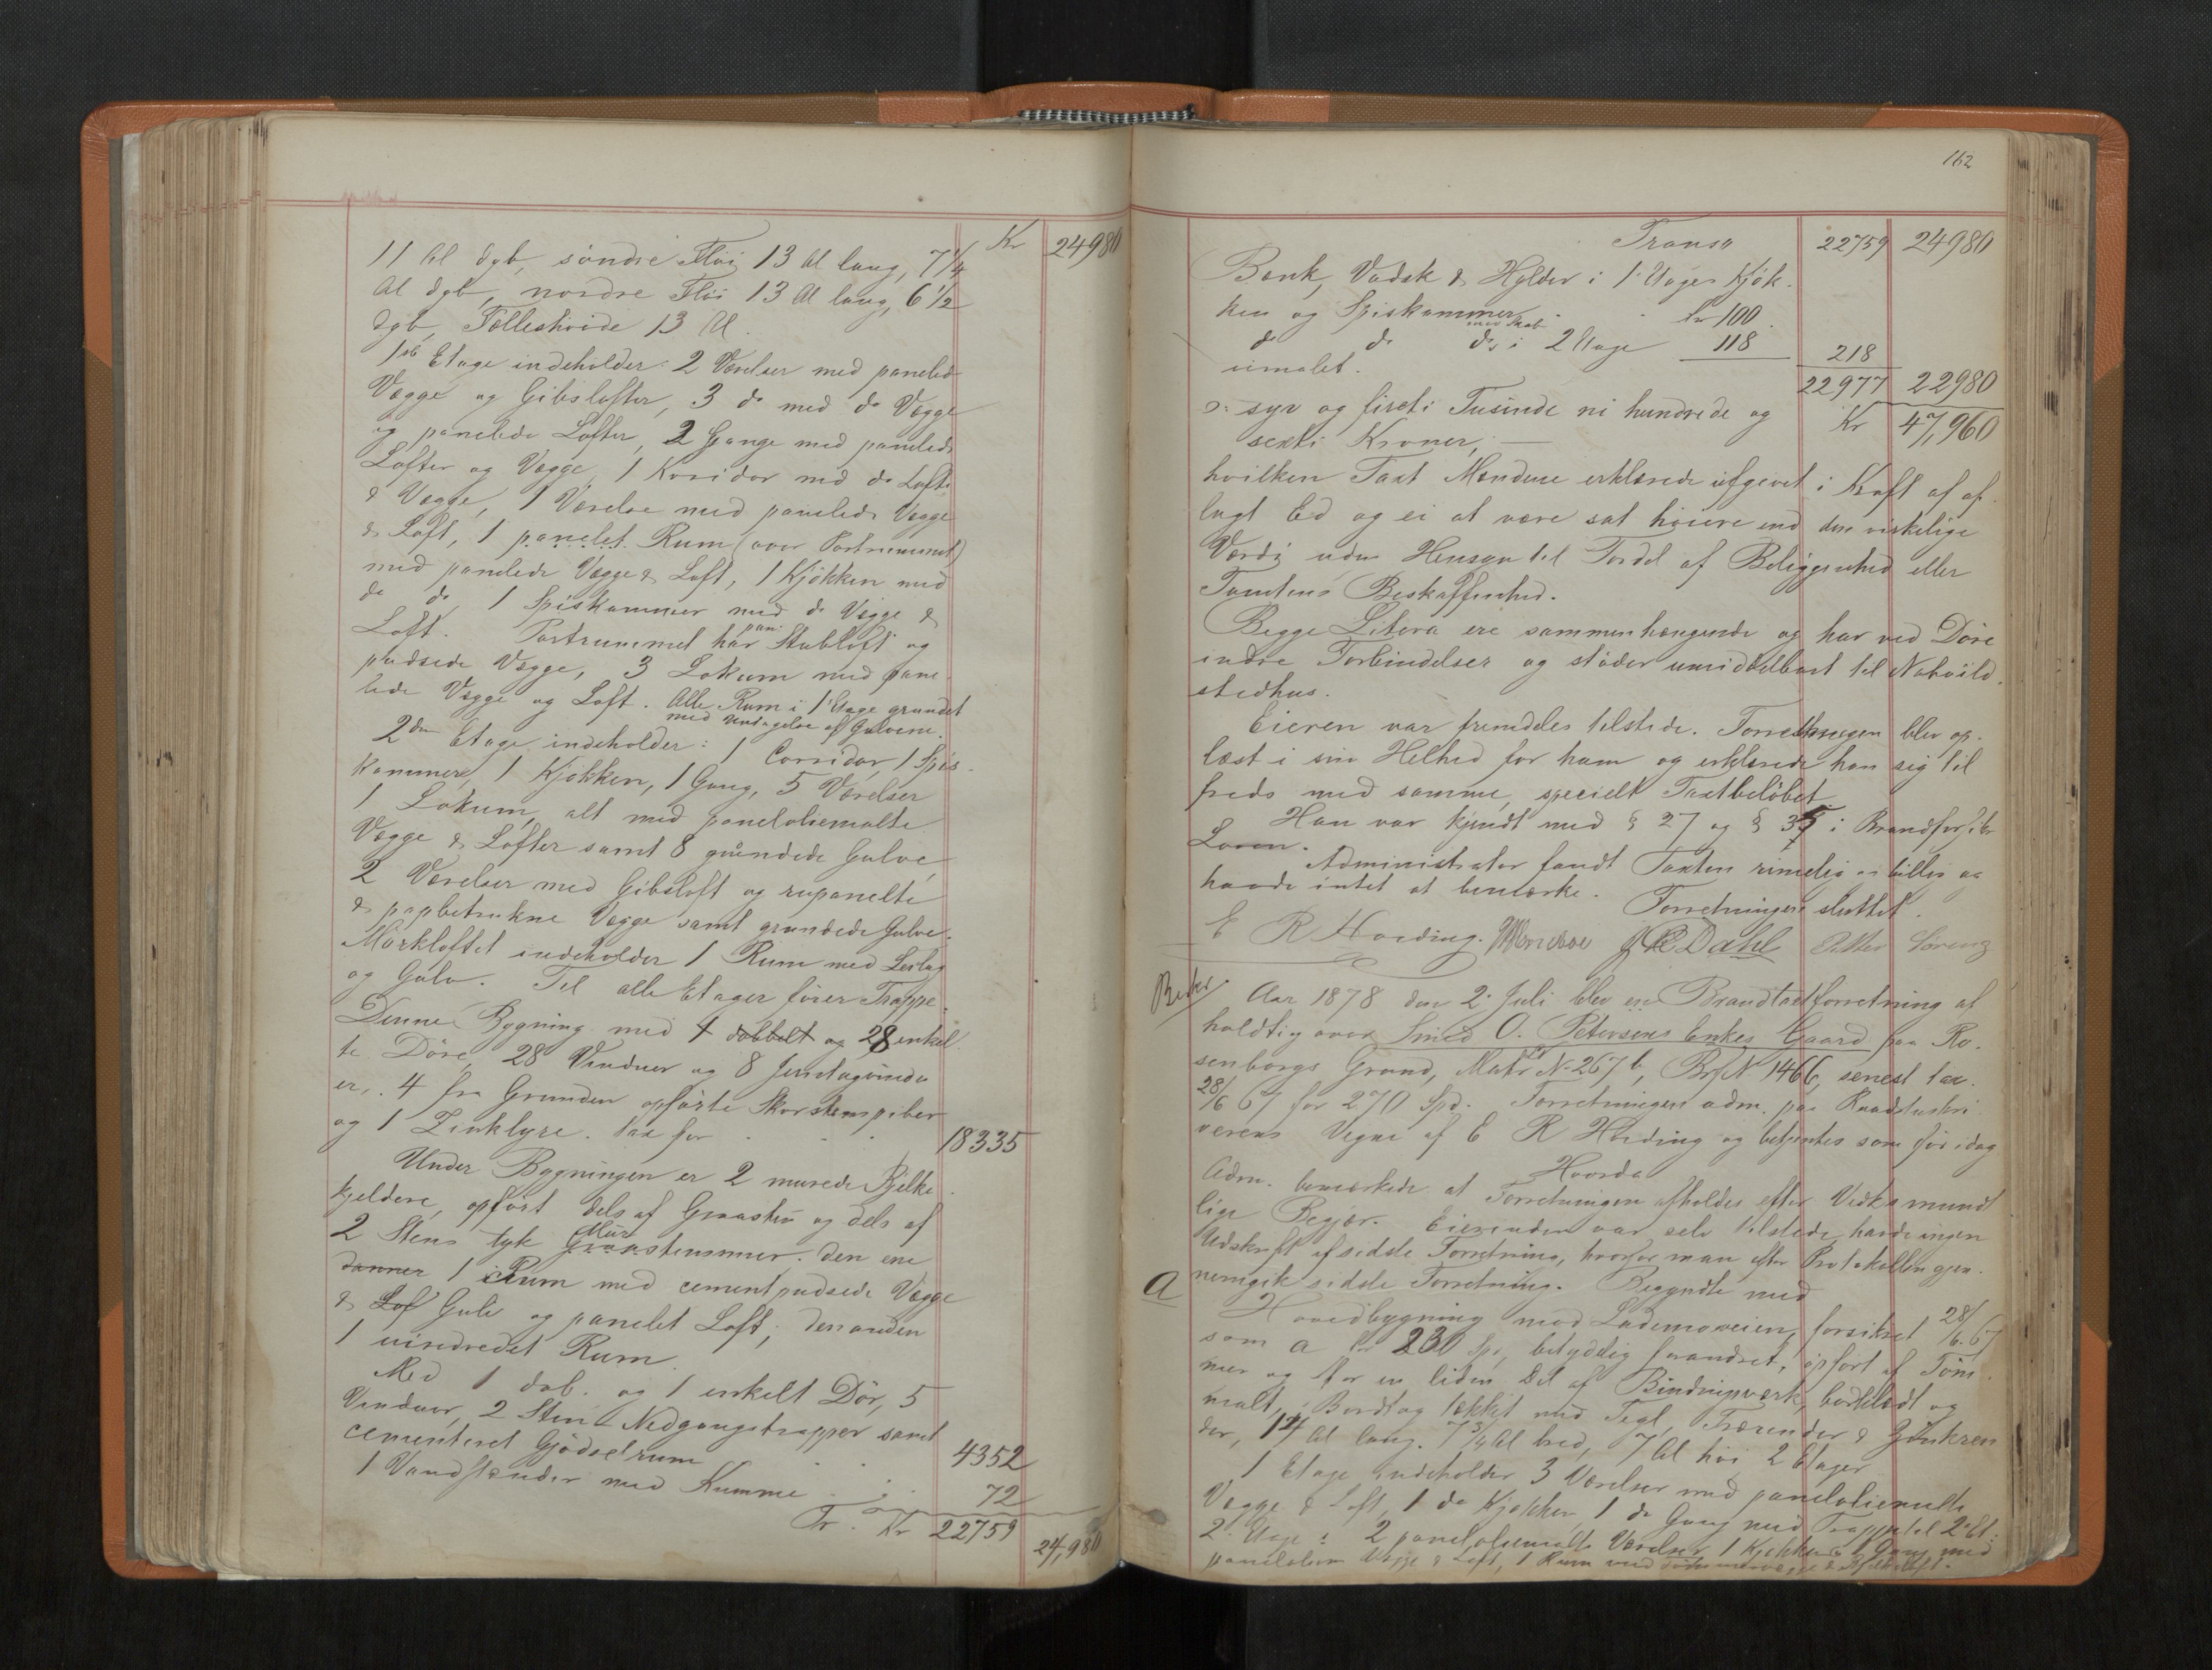 Kr 24980
11 Al dyb, søndre Fløi 13 Al lang, 7 1/4
Al dyb, nordre Fløi 13 Al lang, 6 1/2
dyb, Fælleshøide 13 Al.
1ste Etage indeholder: 2 Værelser med panelede
Vægge og Gibslofter, 3 do med do Vægge
og panelede Lofter, 2 Gange med panelede
Lofter og Vægge, 1 Koridor med do Loft
& Vægge, 1 Værelse med panelede Vægge
& Loft, 1 panelet Rum (over Portrummet)
med panelede Vægge & Loft, 1 Kjøkken med
do do 1 Spiskammer med do Vægge &
Loft. Portrummet har pan. Stubloft og
pudsede Vægge, 3 Lokum med pane
lede Vægge og Loft. Alle Rum i 1 Etage grundet
med Undtagelse af Gulvene.
2den Etage indeholder: 1 Corridor, 1 Spis
kammer, 1 Kjøkken, 1 Gang, 5 Værelser
1 Lokum, alt med paneloliemalte
Vægge & Lofter samt 8 grundede Gulve,
2 Værelser med Gibsloft og rupanelte
& papbetrukne Vægge samt grundede Gulve.
Mørkloftet indeholder 1 Rum med
og Gulv. Til alle Etager fører Trappe.
Denne Bygning med 4 dobbelt og 28 enkel
te Døre, 28 Vinduer og 8 Jerntagvindu
er, 4 fra Grunden opførte Skorstenspiber
og 1 Zinklyre. Tax for 18335
Under Bygningen er 2 murede Bjelke
kjeldere, opført dels af Graasten og dels af
2 Stens tyk Mur Graastensmur. Den ene
danner 1 Rum med cementpudsede Vægge
& Lof Gulv og panelet Loft; den anden
1 uindredet Rum.
Med 1 dob. og 1 enkelt Dør, 5
Vinduer, 2 Sten Nedgangstrapper samt
cementeret Gjødselrum 4352
1 Vandstænder med Kumme 72
Tr. Kr 22759 24,980
162
Transp 22759 24980
Bænk, Vadsk & Hylder i 1 Etages Kjøk-
ken og Spiskammer Kr 100
do do do med Skab i 2 Etage 118 218
umalet. 22977 22980
ɔ: syv og fireti Tusinde ni hundrede og Kr 47,960
sexti Kroner,
hvilken Taxt Mændene erklærede afgivet i Kraft af af-
lagt Ed og ei at være sat høiere end den virkelige
Værdi uden Hensyn til Fordel af Beliggenhed eller
Tomtens Beskaffenhed.
Begge Litera ere sammenhængende og har ved Døre
indre Forbindelser og støder umiddelbart til Naboild-
stedhus.
Eieren var fremdeles tilstede. Forretningen blev op-
læst i sin Helhed for ham og erklærede han sig til
freds med samme, specielt Taxtbeløbet
Han var kjendt med § 27 og § 37 i Brandforsikr
Loven.
Administrator fandt Taxten rimelig og billig og
havde intet at bemærke. Forretningen sluttet.
E R Hoeding. J C Dahl Petter Lorenz
Aar 1878 den 2 Juli blev en Brandtaxtforretning af
holdt over Smed O. Petersens Enkes Gaard paa Ro-
senborgs Grund, Matr No 267 b, Brf No 1466, senest tax.
28/6 67 for 270 Spd. Forretningen adm. paa Raadstuskri
verens Vegne af E R Hoeding og betjentes som før idag
Hvorda
Adm. bemærkede at Forretningen afholdes efter Vedkommend
lige Begjær. Eierinden var selv tilstede, havde ingen
Udskrift af sidste Forretning, hvorfor man efter Protokollen gjen-
nemgik sidste Forretning. Begyndte med
a
Hovedbygning mod Lademoveien, forsikret 28/6 67
som a for 230 Sp, betydelig forandret, opført af Tøm
mer og for en liden Del af Bindingsværk, bordklædt og
malt, Bordtag tækket med Tegl, Trærender &
der, 14 Al lang. 7 3/4 Al bred, 7 Al høi 2 Etager
1 Etage indeholder 3 Værelser med paneloliemalte
Vægge & Loft, 1 do Kjøkken 1 do Gang med Trappe til 2 Et.
2 Etage: 2 paneloliemalte Værelser 1 Kjøkken 1 Gang med
Vægge & Loft, 1 Rum med Tømmervægge &